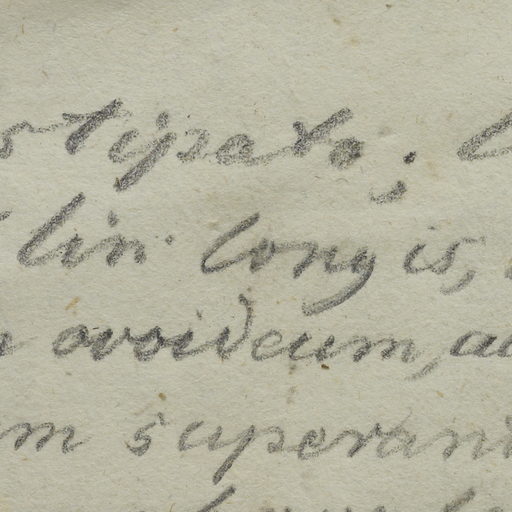 stipato;
lin. longis,
ovoideum, a
m superan